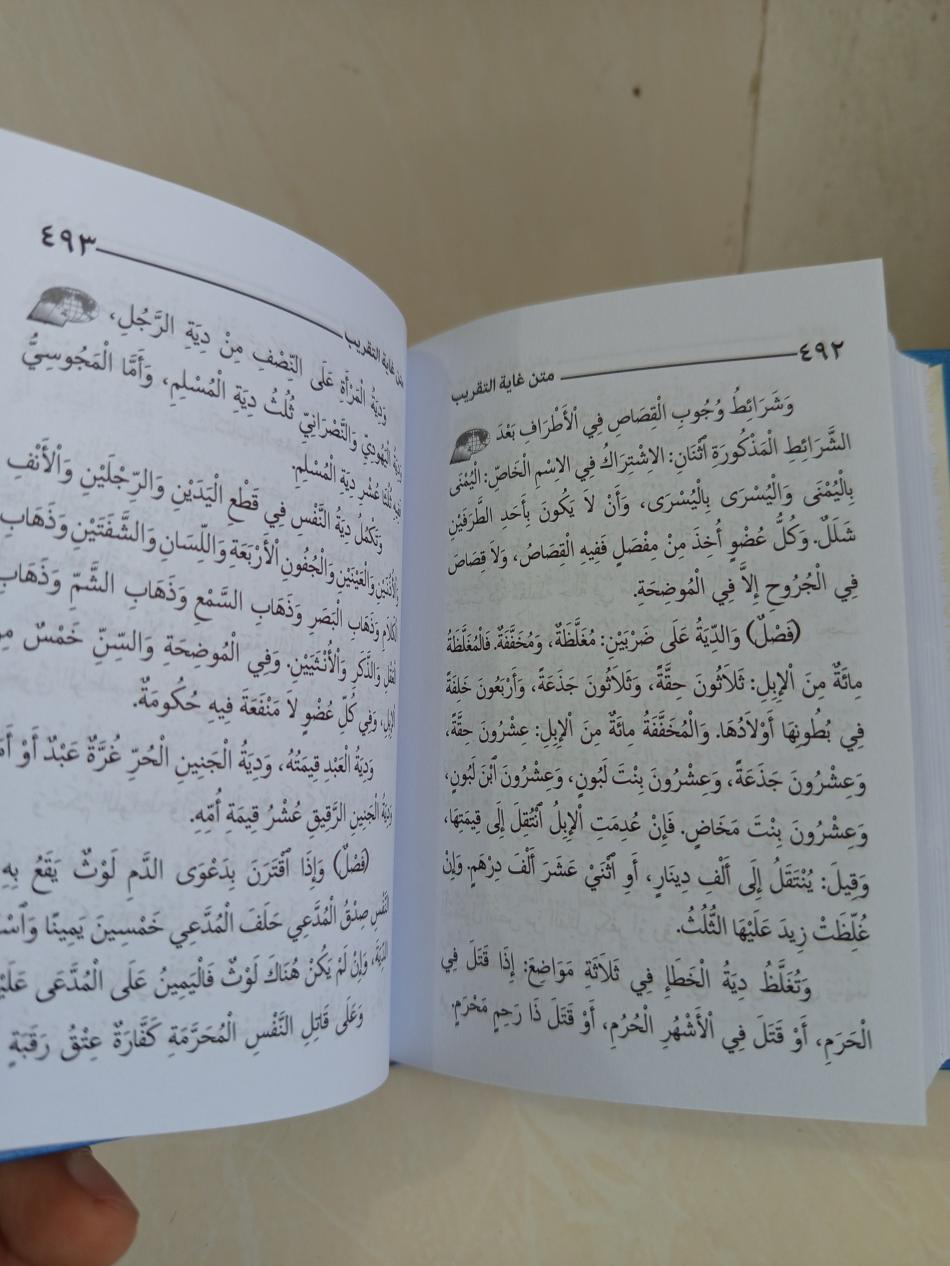 ٤٩٢ متن غاية التقريب
وَشَرَائِطُ وُجُوبِ الْقِصَاصِ فِي الْأَطْرَافِ بَعْدَ
الشَّرَائِطِ الْمَذْكُورَةِ ٱثْنَانِ: الاشْتِرَاكُ فِي الاِسْمِ الْخَاصِّ: الْيُمْنَى
بِالْيُمْنَى وَالْيُسْرَى بِالْيُسْرَى، وَأَنْ لاَ يَكُونَ بِأَحَدِ الطَّرَفَيْنِ
شَلَلٌ. وَكُلُّ عُضْوٍ أُخِذَ مِنْ مِفْصَلٍ فَفِيهِ الْقِصَاصُ، وَلاَ قِصَاصَ
فِي الْجُرُوحِ إِلاَّ فِي الْمُوضِحَةِ.
(فَصْلٌ) وَالدِّيَةُ عَلَى ضَرْبَيْنِ: مُغَلَّظَةٌ، وَمُخَفَّفَةٌ. فَالْمُغَلَّظَةُ
مِائَةٌ مِنَ الْإِبِلِ: ثَلاَثُونَ حِقَّةً، وَثَلاَثُونَ جَذَعَةً، وَأَرْبَعُونَ خَلِفَةً
فِي بُطُونِهَا أَوْلاَدُهَا. وَالْمُخَفَّفَةُ مِائَةٌ مِنَ الْإِبِلِ: عِشْرُونَ حِقَّةً،
وَعِشْرُونَ جَذَعَةً، وَعِشْرُونَ بِنْتَ لَبُونٍ، وَعِشْرُونَ ٱبْنَ لَبُونٍ،
وَعِشْرُونَ بِنْتَ مَخَاضٍ. فَإِنْ عُدِمَتِ الْإِبِلُ ٱنْتُقِلَ إِلَى قِيمَتِهَا،
وَقِيلَ: يُنْتَقَلُ إِلَى أَلْفِ دِينَارٍ، أَوِ ٱثْنَيْ عَشَرَ أَلْفَ دِرْهَمٍ. وَإِنْ
غُلِّظَتْ زِيدَ عَلَيْهَا الثُّلُثُ.
وَتُغَلَّظُ دِيَةُ الْخَطَإِ فِي ثَلاَثَةِ مَوَاضِعَ: إِذَا قَتَلَ فِي
الْحَرَمِ، أَوْ قَتَلَ فِي الْأَشْهُرِ الْحُرُمِ، أَوْ قَتَلَ ذَا رَحِمٍ مَحْرَمٍ.
غاية التقريب ٤٩٣
وَدِيَةُ الْمَرْأَةِ عَلَى النِّصْفِ مِنْ دِيَةِ الرَّجُلِ،
الْيَهُودِيِّ وَالنَّصْرَانِيِّ ثُلُثُ دِيَةِ الْمُسْلِمِ، وَأَمَّا الْمَجُوسِيُّ
ثُلُثَا عُشْرِ دِيَةِ الْمُسْلِمِ.
وَتَكْمُلُ دِيَةُ النَّفْسِ فِي قَطْعِ الْيَدَيْنِ وَالرِّجْلَيْنِ وَالْأَنْفِ
وَالْعَيْنَيْنِ وَالْجُفُونِ الْأَرْبَعَةِ وَاللِّسَانِ وَالشَّفَتَيْنِ وَذَهَابِ
وَذَهَابِ الْبَصَرِ وَذَهَابِ السَّمْعِ وَذَهَابِ الشَّمِّ وَذَهَابِ
وَالذَّكَرِ وَالْأُنْثَيَيْنِ. وَفِي الْمُوضِحَةِ وَالسِّنِّ خَمْسٌ
وَفِي كُلِّ عُضْوٍ لاَ مَنْفَعَةَ فِيهِ حُكُومَةٌ.
وَدِيَةُ الْعَبْدِ قِيمَتُهُ، وَدِيَةُ الْجَنِينِ الْحُرِّ غُرَّةٌ عَبْدٌ أَوْ
وَدِيَةُ الْجَنِينِ الرَّقِيقِ عُشْرُ قِيمَةِ أُمِّهِ.
(فَصْلٌ) وَإِذَا ٱقْتَرَنَ بِدَعْوَى الدَّمِ لَوْثٌ يَقَعُ بِهِ
النَّفْسِ صِدْقُ الْمُدَّعِي حَلَفَ الْمُدَّعِي خَمْسِينَ يَمِينًا
وَإِنْ لَمْ يَكُنْ هُنَاكَ لَوْثٌ فَالْيَمِينُ عَلَى الْمُدَّعَى
وَعَلَى قَاتِلِ النَّفْسِ الْمُحَرَّمَةِ كَفَّارَةٌ عِتْقُ رَقَبَةٍ